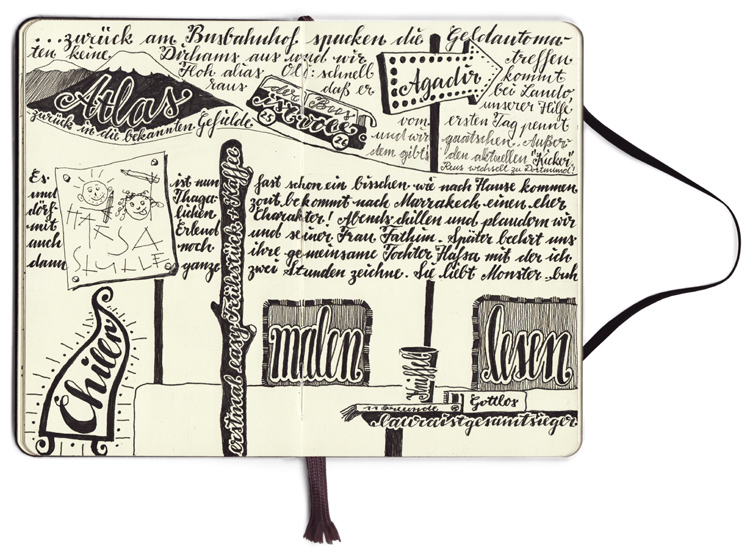 ...zurück am Busbahnhof spucken die Geldautoma-
ten keine Dirhams aus und wir treffen
Floh alias Oli: schnell kommt
raus daß er bei Lando,
unserer Hilfe
vom ersten Tag pennt
und wir quatschen. Außer-
dem gibts den aktuellen "Kicker"
Reus wechselt zu Dortmund!
Atlas
zurück in die bekannten Gefilde
der Bus
ist robe
25
26
Agadir
Es ist nun fast schon ein bisschen wie nach Hause kommen
und Thaga-
zout bekommt nach Marrakech einen eher
dörf-
lichen Charakter! Abends chillen und plaudern wir
mit Erlend und seiner Frau Fathim. Später beehrt uns
auch noch ihre gemeinsame Tochter Hafsa mit der ich
dann ganze zwei Stunden zeichne. Sie liebt Monster-buh
HAFSA
erstmal easy Frühstück + Kaffee
Chillen
malen
lesen
Kniffel
11 Freunde
Gottlos
lauraistgesamtsieger